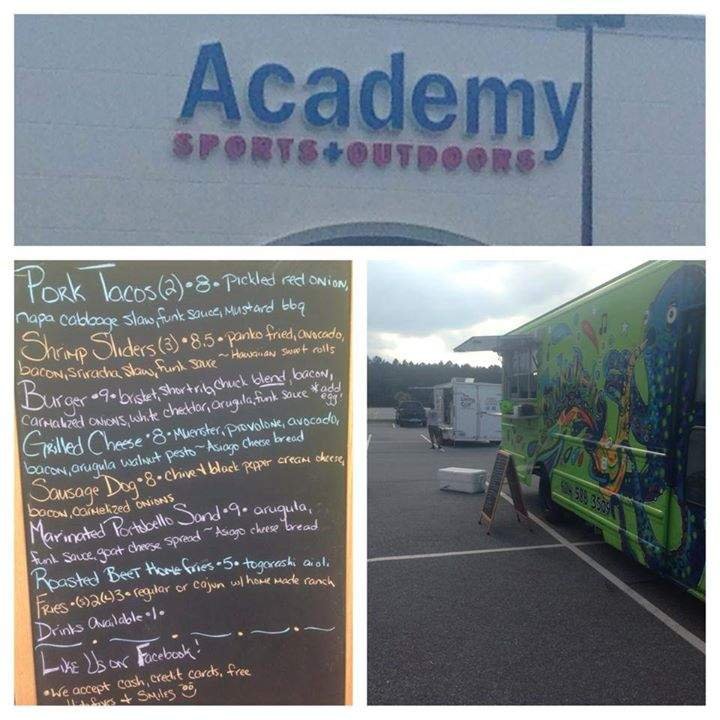 Academy
SPORTS+OUTDOORS
Pork Tacos (2) • 8 • Pickled red onion,
napa cabbage slaw, funk sauce, mustard bbq
Shrimp Sliders (3) • 8.5 • panko fried, avocado,
bacon, Sriracha, slaw, Funk Sauce ~ Hawaiian sweet rolls
Burger • 9 • brisket, short rib, chuck blend, bacon,
carmalized onions, white cheddar, arugula, funk sauce *add egg!
Grilled Cheese • 8 • Muenster, provolone, avocado,
bacon, arugula walnut pesto ~ Asiago cheese bread
Sausage Dog • 8 • chive + black pepper cream cheese,
bacon, carmelized onions
Marinated Portobello Sand • 9 • arugula,
funk sauce, goat cheese spread ~ Asiago cheese bread
Roasted Beet Home fries • 5 • togarashi aioli
Fries • (s)2(L)3 • regular or cajun w/ home made ranch
Drinks Available • 1 •
Like Us on Facebook!
• We accept cash, credit cards, free
High fives + Smiles
604 589 3509